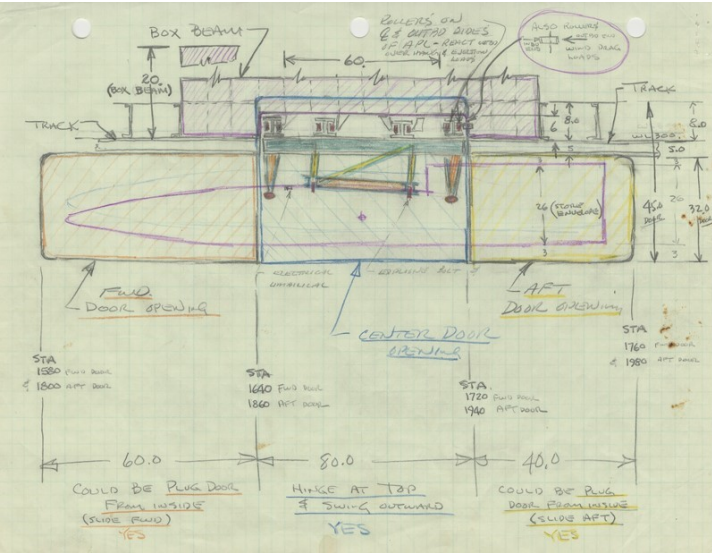 BOX BEAM
ROLLERS ON
& OUTBD SIDES
OF APL - REACT
LOADS
ALSO ROLLERS
LOADS
60.
20.
(BOX BEAM)
TRACK
TRACK
6
8.0
8.0
WL 300.
5
5.0
3
3
26 (STORE
ENVELOPE)
26
45.0
DOOR
32.0
3
3
EJECTION
UMBILICAL
FWD.
DOOR OPENING
AFT
DOOR OPENING
CENTER DOOR
OPENING
STA
1580 FWD DOOR
& 1800 AFT DOOR
STA
1640 FWD DOOR
1860 AFT DOOR
STA.
1720 FWD DOOR
1940 AFT DOOR
STA
1760 FWD DOOR
& 1980 AFT DOOR
60.0
80.0
40.0
COULD BE PLUG DOOR
FROM INSIDE
(SLIDE FWD)
YES
HINGE AT TOP
& SWING OUTWARD
YES
COULD BE PLUG
DOOR FROM INSIDE
(SLIDE AFT)
YES